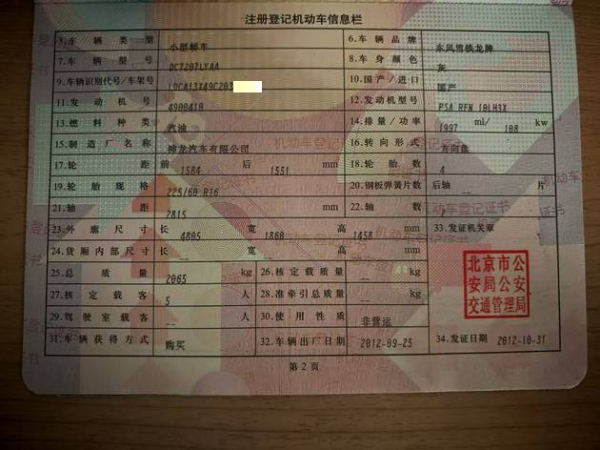 注册登记机动车信息栏
5.车辆类型 小型轿车 6.车辆品牌 东风雪铁龙牌
7.车辆型号 DC7207LYAA 8.车身颜色 灰
9.车辆识别代号/车架号 10.国产/进口 国产
11.发动机号 4900410 12.发动机型号 PSA RFN 10LH3X
13.燃料种类 汽油 14.排量/功率 1997 ml/ 108 kw
15.制造厂名称 神龙汽车有限公司 16.转向形式 方向盘
17.轮距 前 1584 后 1551 mm 18.轮胎数 4
19.轮胎规格 225/60 R16 20.钢板弹簧片数 后轴 -- 片
21.轴距 2815 mm 22.轴数 2
23.外廓尺寸 长 4805 宽 1860 高 1458 mm 33.发证机关章
24.货厢内部尺寸 长 -- 宽 -- 高 -- mm
25.总质量 2065 kg 26.核定载质量 -- kg
27.核定载客 5 人 28.准牵引总质量 -- kg
29.驾驶室载客 -- 人 30.使用性质 非营运
31.车辆获得方式 购买 32.车辆出厂日期 2012-09-25 34.发证日期 2012-10-31
北京市公
安局公安
交通管理局
第2页